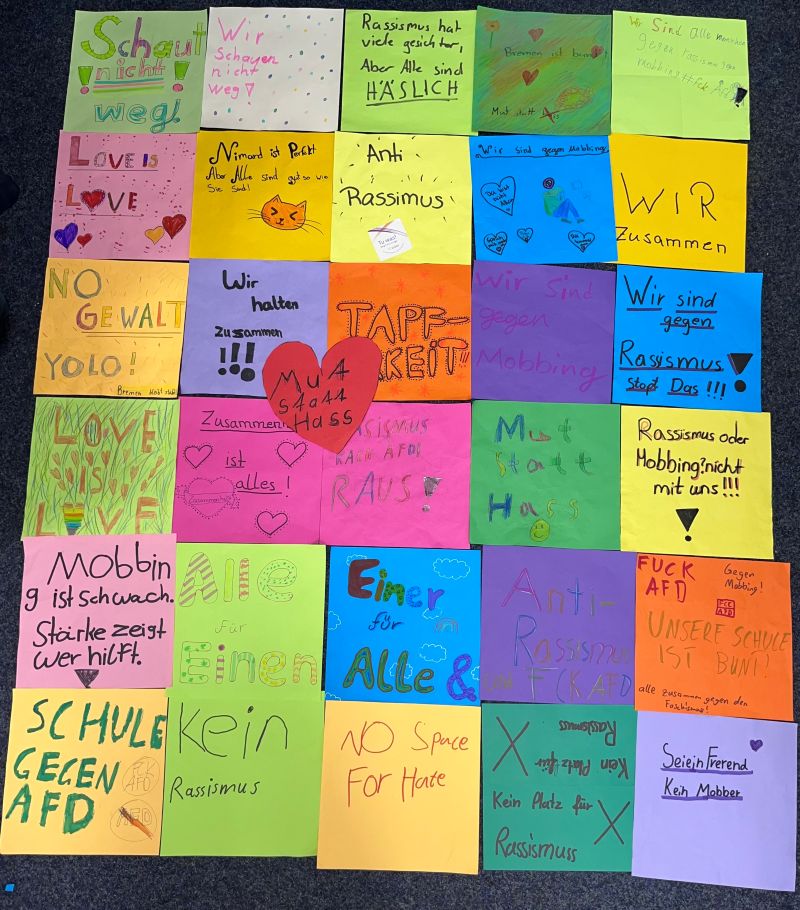 Schaut
!nicht!
weg!
Wir
Schauen
nicht
weg!
Rassismus hat
viele gesichter,
Aber Alle sind
HÄSLICH
Bremen ist bunt!
Mut statt
Wir Sind alle menschen
gegen rassismus gegen
mobbing #fck AfD!
LOVE IS
LOVE
Nimand ist Perfekt
Aber Alle sind gut so wie
Sie Sind!
Anti
Rassimus
Wir sind gegen Mobbing
Du bist
nicht
Allein
WIR
Zusammen
NO
GEWALT
YOLO!
Bremen
Wir
halten
Zusammen
!!!
TAPF-
KEIT!!
Wir Sind
gegen
Mobbing
Wir sind
gegen
Rassismus!
Stopt Das!!!
Mut
statt
Hass
LOVE
IS
LOVE
Zusammen
ist
alles!
Zusammenhalt
AFD!
RAUS!
Mut
Statt
Hass
Rassismus oder
Mobbing?nicht
mit uns!!!
!
Mobbin
g ist schwach.
Stärke zeigt
wer hilft.
Alle
für
Einen
Einer
für
Alle &
Anti-
Rassismus
und FCKAFD
FUCK
AFD
Gegen
Mobbing!
FCK
AFD
UNSERE SCHULE
IST BUNT!
alle zusammen gegen den
Faschismus!
SCHULE
GEGEN
AFD
AFD
AFD
Kein
Rassismus
NO Space
For Hate
Kein Platz für
Rassismuss
X
Kein Platz für
X
Rassismuss
Seiein Frerend
Kein Mobber